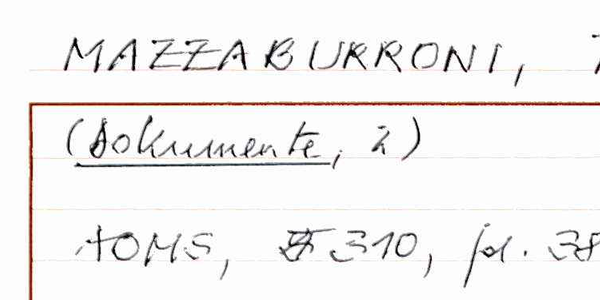 MAZZABURRONI,
(Dokumente, 2)
AOMS, 310, fol. 38